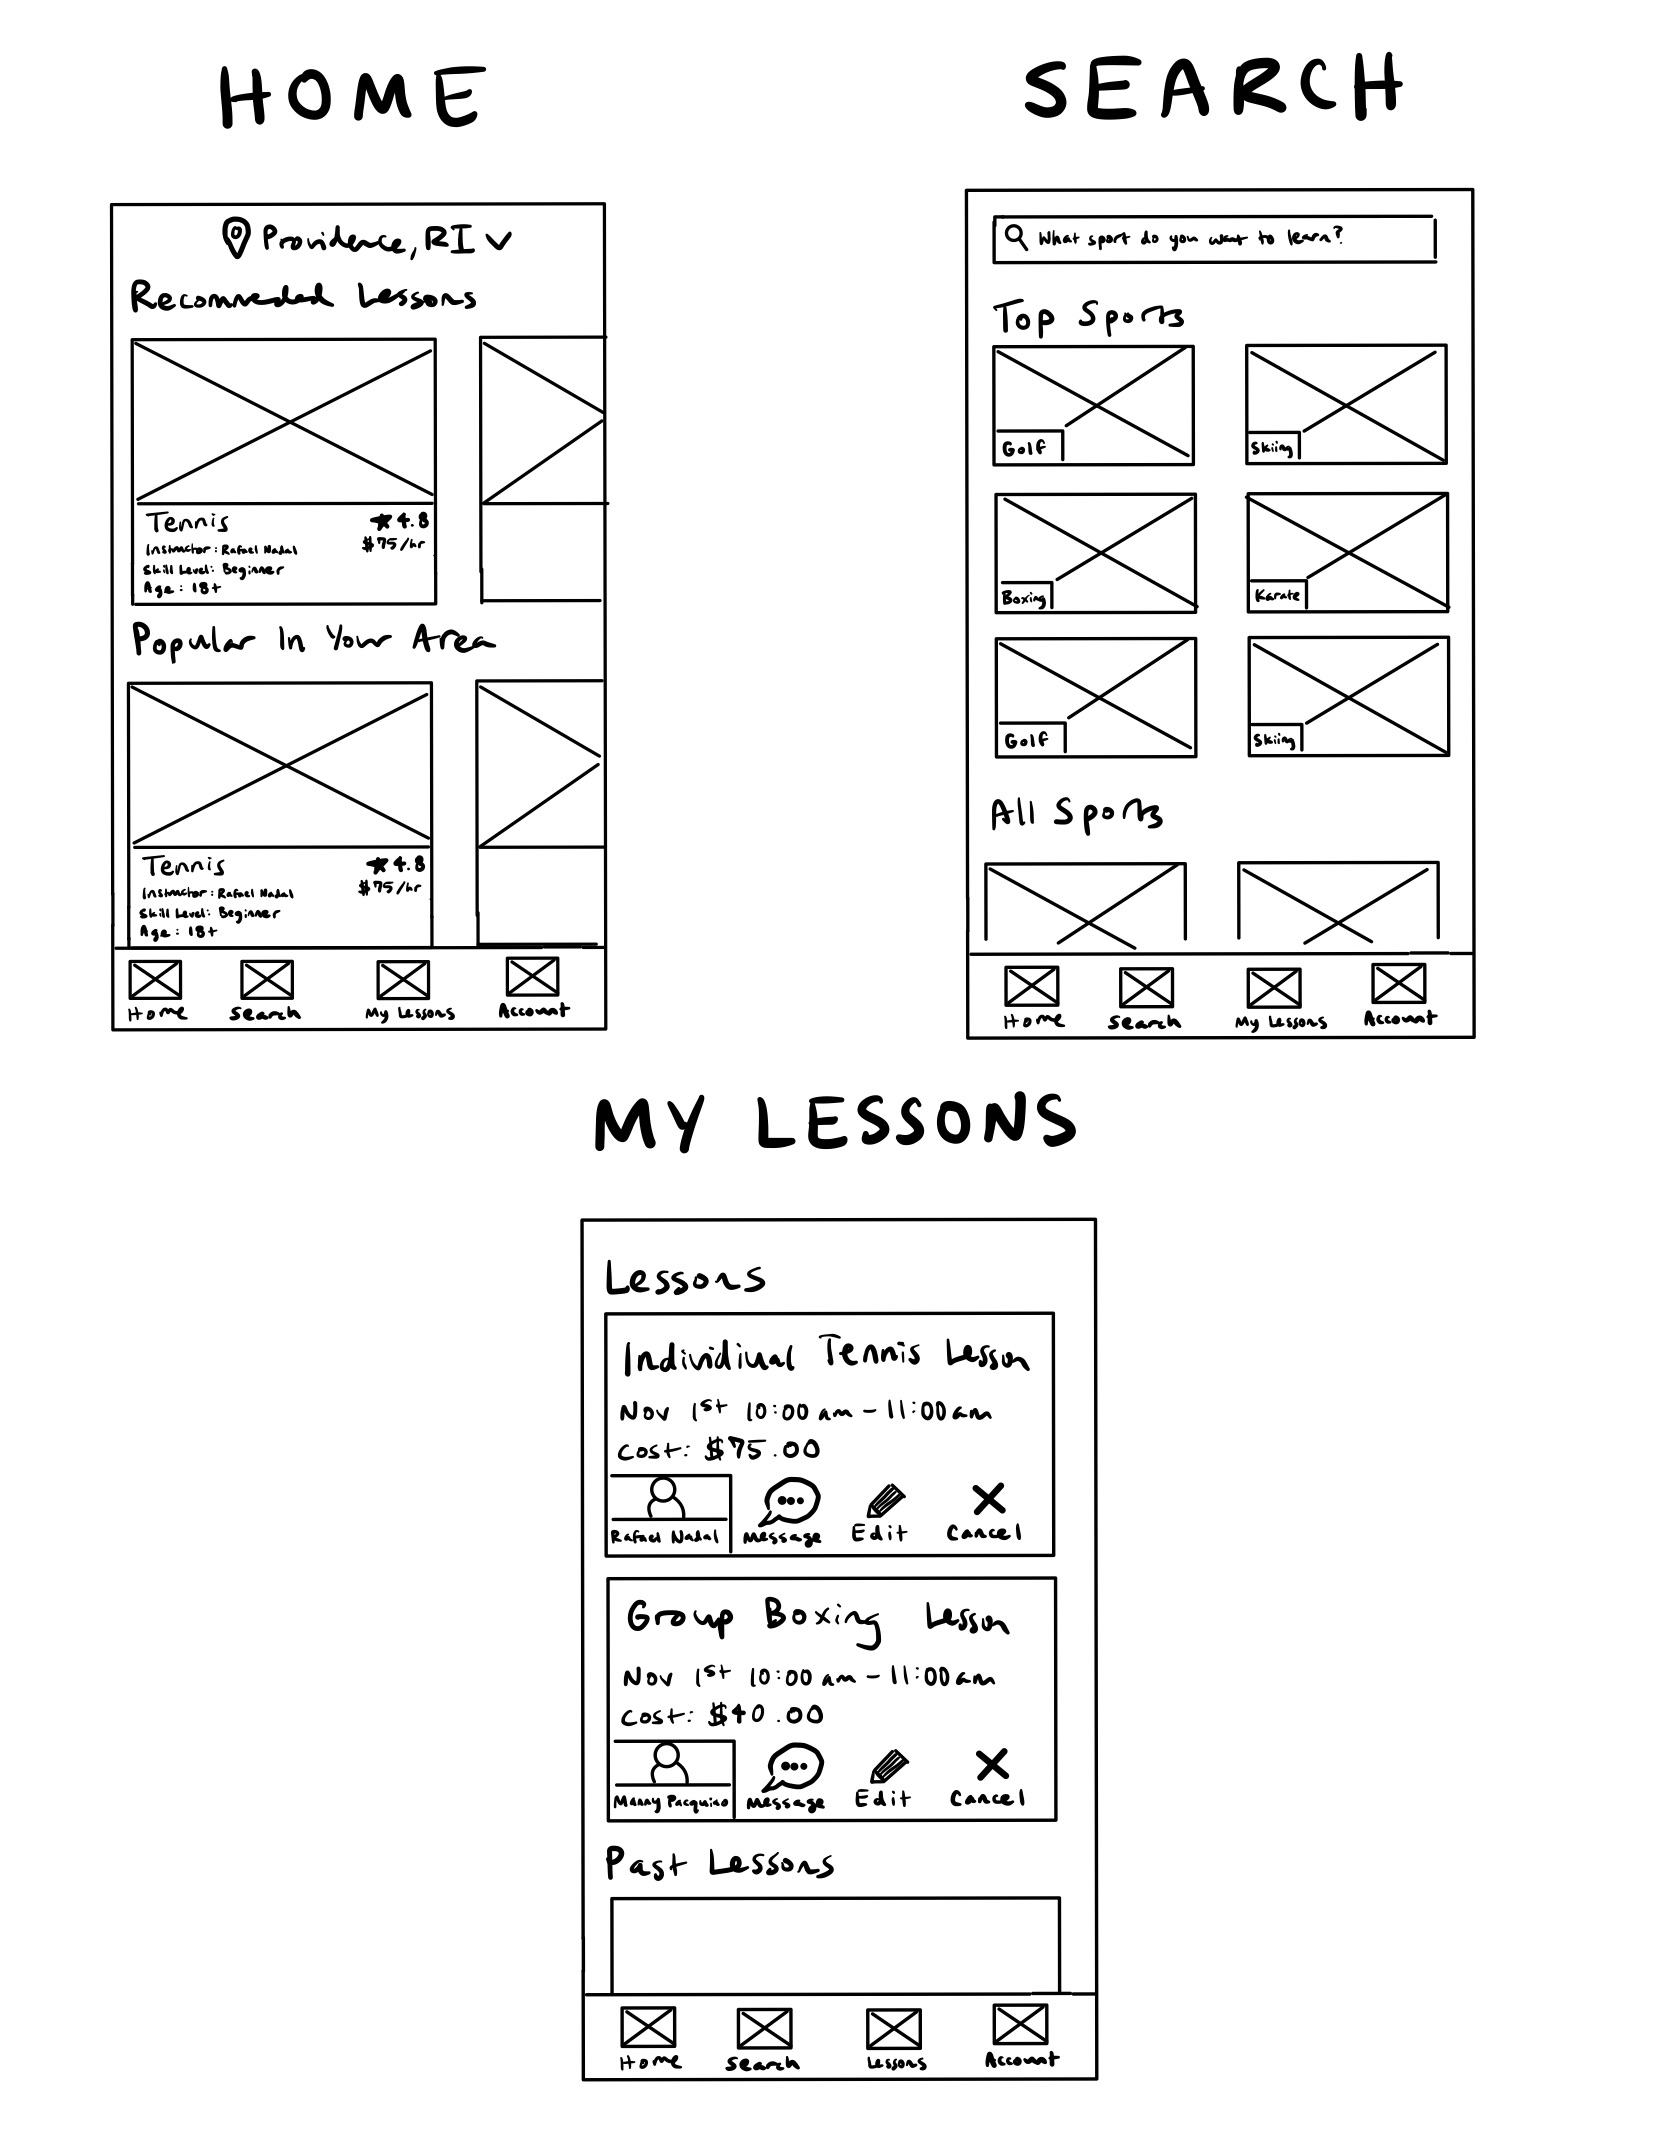 HOME
Providence, RI
Recommeded Lessons
Tennis
★4.8
Instructor: Rafael Nadal
$75/hr
Skill Level: Beginner
Age: 18+
Popular In Your Area
Tennis
★4.8
Instructor: Rafael Nadal
$75/hr
Skill Level: Beginner
Age: 18+
Home
Search
My Lessons
Account
SEARCH
What sport do you want to learn?
Top Sports
Golf
Skiing
Boxing
Karate
Golf
Skiing
All Sports
Home
Search
My Lessons
Account
MY LESSONS
Lessons
Individiual Tennis Lesson
Nov 1st 10:00 am - 11:00 am
Cost: $75.00
Rafael Nadal
Message
Edit
Cancel
Group Boxing Lesson
Nov 1st 10:00 am - 11:00 am
Cost: $40.00
Manny Pacquiao
Message
Edit
Cancel
Past Lessons
Home
Search
Lessons
Account